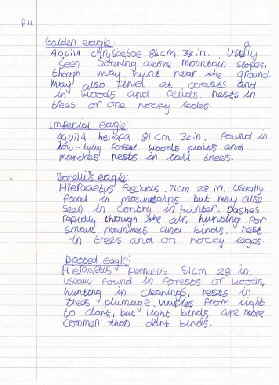 P4
Golden eagle
Aquila chrysaetos 84cm. 33in. Usually
seen soaring along mountain slopes,
though may hunt near the ground
May also live at coasts and
in woods and fields. Nests in
trees or on rocky ledges
Imperial eagle
aquila heliaca 81cm 32in. Found in
low-lying forest woods plains and
marshes nests in tall trees.
Bonelli's eagle:
Hieraaetus fasciatus. 71cm 28 in. usually
found in mountains but may also
seen in country in winter. Dashes
rapidly through the air, hunting for
small mammals and birds. nest
in trees and on rocky ledges.
Booted Eagle:
Hieraaetus Pennatus 51cm 20 in.
usually found in forests or woods,
hunting in clearings, nests in
trees plumage varies from light
to dark, but light birds are more
common than dark birds.